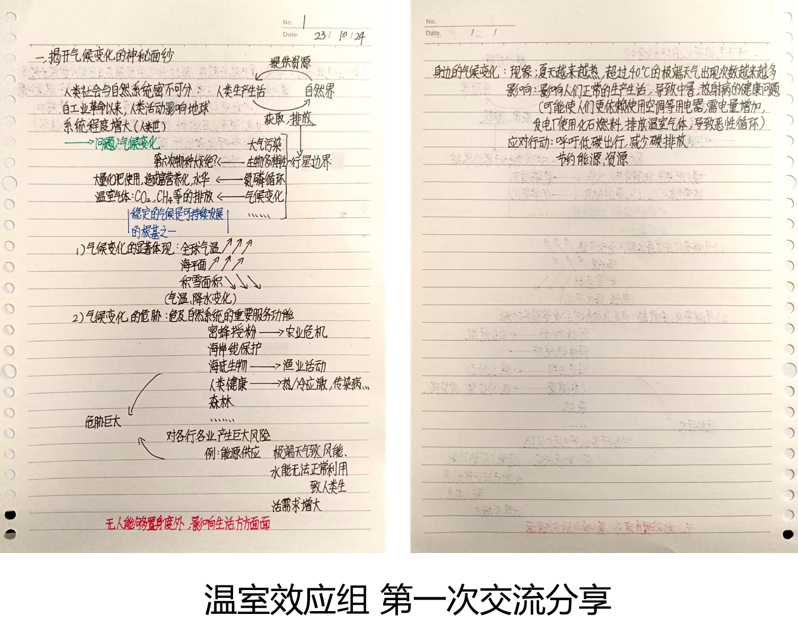 No. 1
Date. 23 / 10 / 24
一.揭开气候变化的神秘面纱
提供资源
人类社会与自然系统密不可分： 人类生产生活 自然界
自工业革命以来，人类活动影响地球 获取，排放
系统程度增大（人类世）
→问题：气候变化 大气污染
第六次物种大灭绝？← 生物多样性 行星边界
大量化肥使用，造成富营养化，水华 ← 氮磷循环
温室气体：CO₂、CH₄等的排放 ← 气候变化
稳定的气候是可持续发展 ······
的根基之一
1）气候变化的显著体现：全球气温↗↗↗
海平面↗↗↗
积雪面积↘↘↘
（气温、降水变化）
2）气候变化的危胁：危及自然系统的重要服务功能
蜜蜂授粉 → 农业危机
海岸线保护
海底生物 → 渔业活动
人类健康 → 热/冷应激，传染病...
森林
······
危胁巨大
对各行各业产生巨大风险
例：能源供应 极端天气致风能、
水能无法正常利用
致人类生
活需求增大
无人能够置身度外，影响生活方方面面
No.
Date. / /
身边的气候变化：现象：夏天越来越热，超过40℃的极端天气出现次数越来越多
影响：影响人们正常的生产生活，导致中暑，热射病的健康问题
（可能使人们更依赖使用空调等用电器，需电量增加，
发电厂使用化石燃料，排放温室气体，导致恶性循环）
应对行动：呼吁低碳出行，减少碳排放
节约能源、资源
温室效应组 第一次交流分享